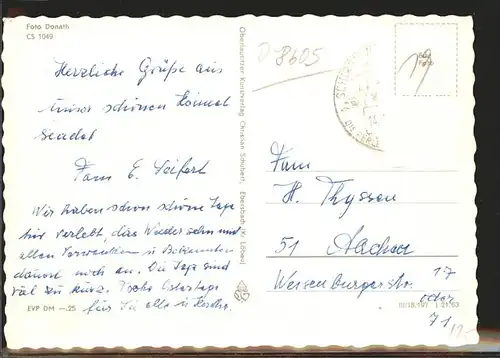 Foto Donath
CS 1049
D-8605
19
Herzliche Grüße aus
unser schönen Heimat
sendet
Fam E. Seifert
Wir haben schon schöne Tage
hir verlebt, das Wiedersehn mit
allen Verwanten u Bekannten
dauert noch an. Die Tage sind
viel zu kurz. Frohe Ostertage
für Sie alle u
EVP DM —.25
Oberlausitzer Kunstverlag Christian Schubert, Ebersbach (Kr. Löbau)
Fam
H. Thyssen
51 Aachen
Weisenburgerstr. 17
oder
71
III/18/197 J 21/63